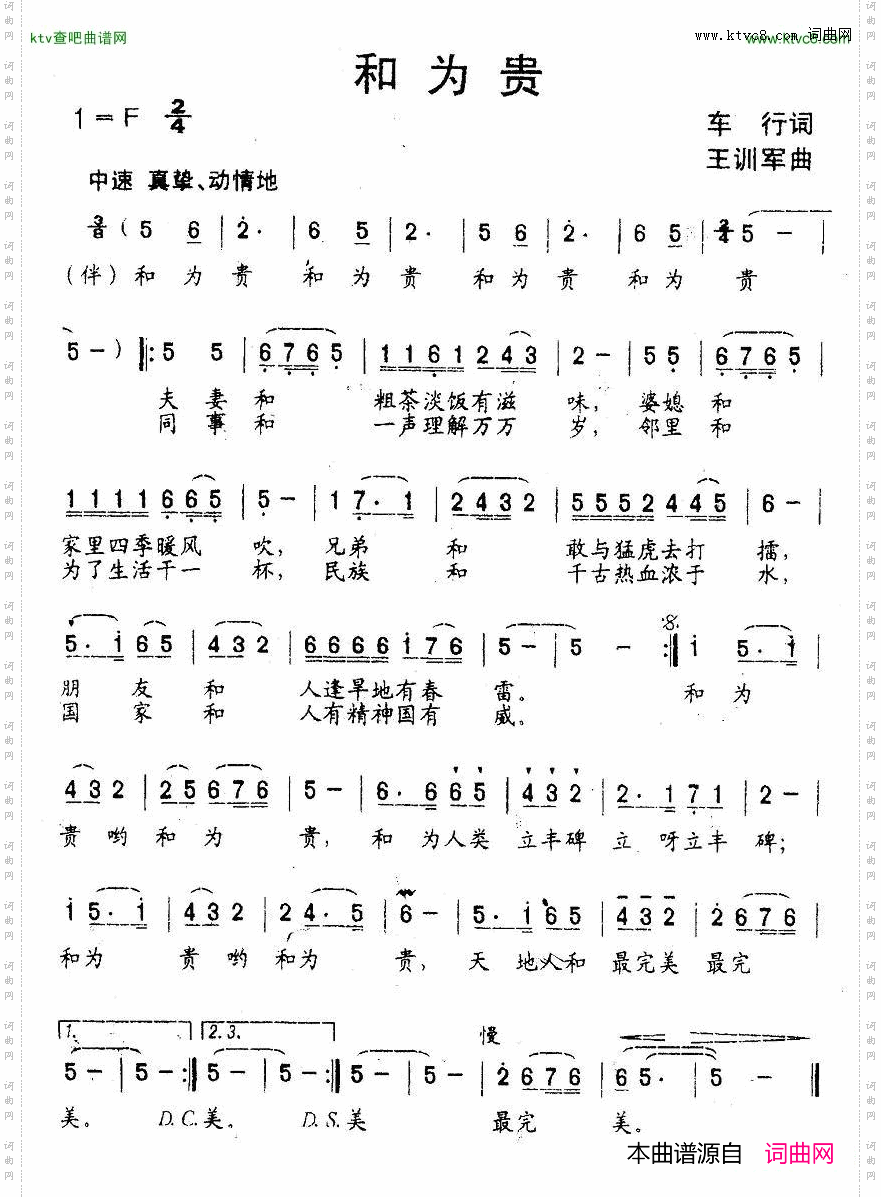 ktv查吧曲谱网
www.ktvc8.com 词曲网
和为贵
1=F 2/4
车 行词
王训军曲
中速 真挚、动情地
(5 6 | 2· | 6 5 | 2· | 5 6 | 2· | 6 5 | 2/4 5 - |
(伴)和 为 贵 和 为 贵 和 为 贵 和 为 贵
5 - ) ‖: 5 5 | 6765 | 1161 243 | 2 - | 55 | 6765 |
夫 妻 和 粗茶淡饭有滋 味, 婆媳 和
同 事 和 一声理解万万 岁, 邻里 和
1111 665 | 5 - | 1 7·1 | 2432 | 5552 445 | 6 - |
家里四季暖风 吹, 兄弟 和 敢与猛虎去打 擂,
为了生活干一 杯, 民族 和 千古热血浓于 水,
5·1 65 | 432 | 6666 176 | 5 - | 5 - :‖ 1 5·1 |
朋 友 和 人逢旱地有春 雷。 和 为
国 家 和 人有精神国有 威。
432 | 25676 | 5 - | 6·665 | 432 | 2·171 | 2 - |
贵 哟 和 为 贵, 和 为人类 立丰碑 立 呀立丰 碑;
1 5·1 | 432 | 2 4·5 | 6 - | 5·165 | 432 | 2676 |
和为 贵 哟 和为 贵, 天 地人和 最完美 最完
1. 2.3. 慢
5 - | 5 - :‖ 5 - | 5 - :‖ 5 - | 5 - | 2676 | 65· | 5 - ‖
美。 D.C.美。 D.S.美 最完 美。
本曲谱源自 词曲网
词曲网